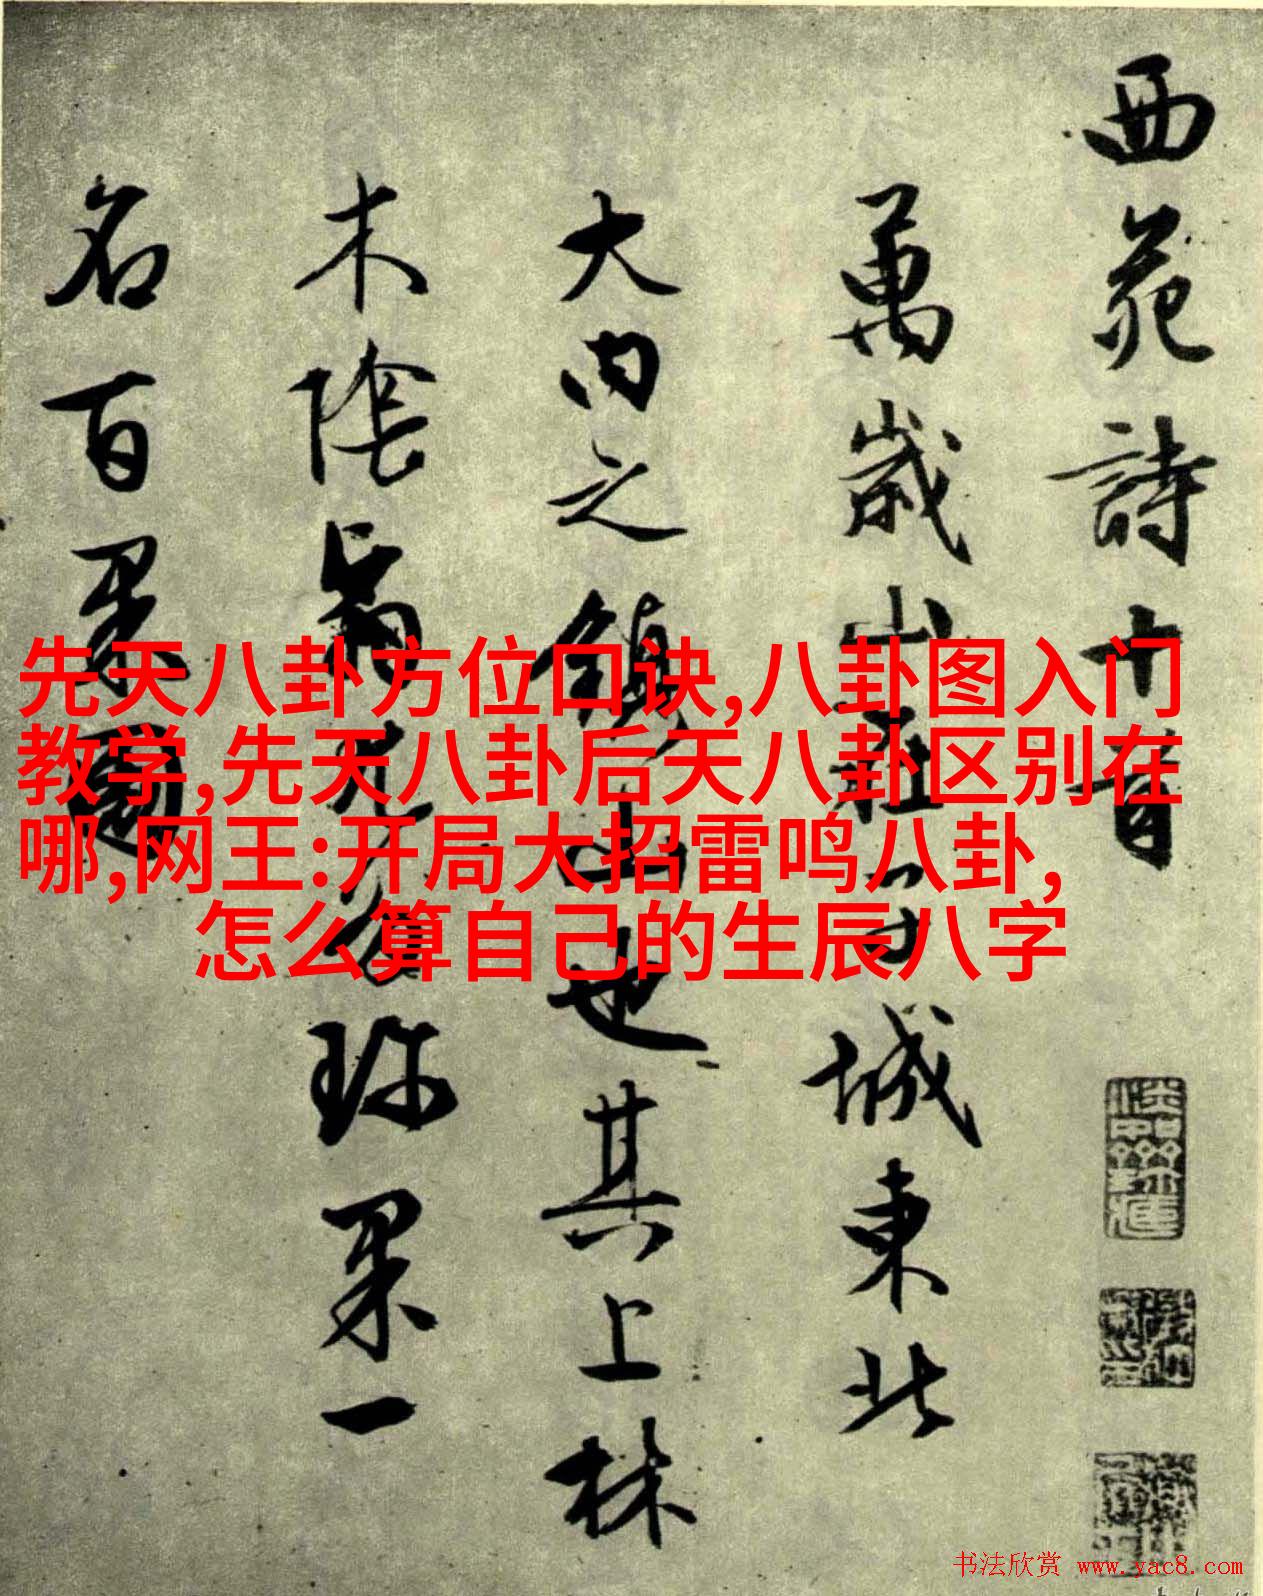 西苑詩十首
萬歲山在子城東北
大内之鎮山也其上林
木陰翳尤多珍果一
名百果園
先天八卦方位口诀,八卦图入门
教学,先天八卦后天八卦区别在
哪,网王:开局大招雷鸣八卦,
怎么算自己的生辰八字
书法欣赏 www.yac8.com